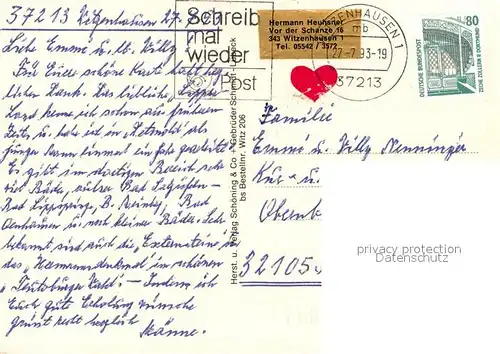 37213 Witzenhausen 27.
Liebe Emmi u. lb. Willy!
Für Eure schöne Karte habt
lichen Dank. Das liebliche "Lipper
Land kenne ich schon aus früheren
Zeiten u. habe ich in Detmold als
junger Mann einmal ein Jahr gearbeitet
Es gibt im dortigen Bereich sehr
viel Bäder, wie Bad Salzuflen
Bad Lippspringe, B. Meinberg, Bad
Oeynhausen u. noch kleiner Bäder. Sehr
bekannt sind auch die "Externsteine" u.
das "Hermannsdenkmal" im schönen
"Teutoburger Wald! - Indem ich
Euch gute Erholung wünsche
grüßt recht herzlich
Männe.
Schreib
mal
wieder
Post
Hermann Heußner
Vor der Schanze 16
343 Witzenhausen 1
Tel. 05542 / 3572
WITZENHAUSEN 1
mb
27-7.93-19
37213
80
DEUTSCHE BUNDESPOST
ZECHE ZOLLERN II DORTMUND
Herst. u. Verlag Schöning & Co + Gebrüder Schmidt Lübeck
bs Bestellnr. Witz 206
Familie
Emmi u. Willy Nenninger
Kur- u.
Obernb
32105
privacy protection
Datenschutz